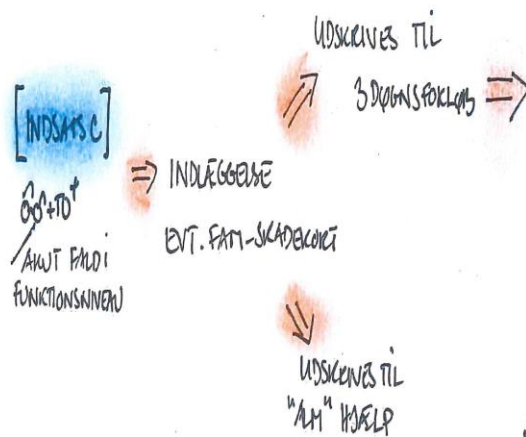 [INDSATS C]
+TO
AKUT FALD I
FUNKTIONSNIVEAU
⇒ INDLÆGGELSE
EVT. FAM-SKADEKORT
UDSKRIVES TIL
3 DØGNSFORLØB ⇒
UDSKRIVES TIL
"ALM" HJÆLP